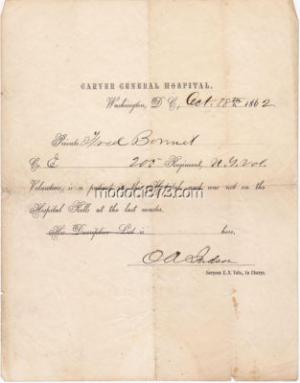 CARVER GENERAL HOSPITAL,
Washington, D. C., Oct. 18th 1862
Private Fred
Co. E Regiment, Vol
Volunteers, is a patient in this Hospital and was not on the
Hospital Rolls at the last muster.
His Descriptive List is here,
modoc1873.com
O A Judson
Surgeon U.S. Vols., in Charge.